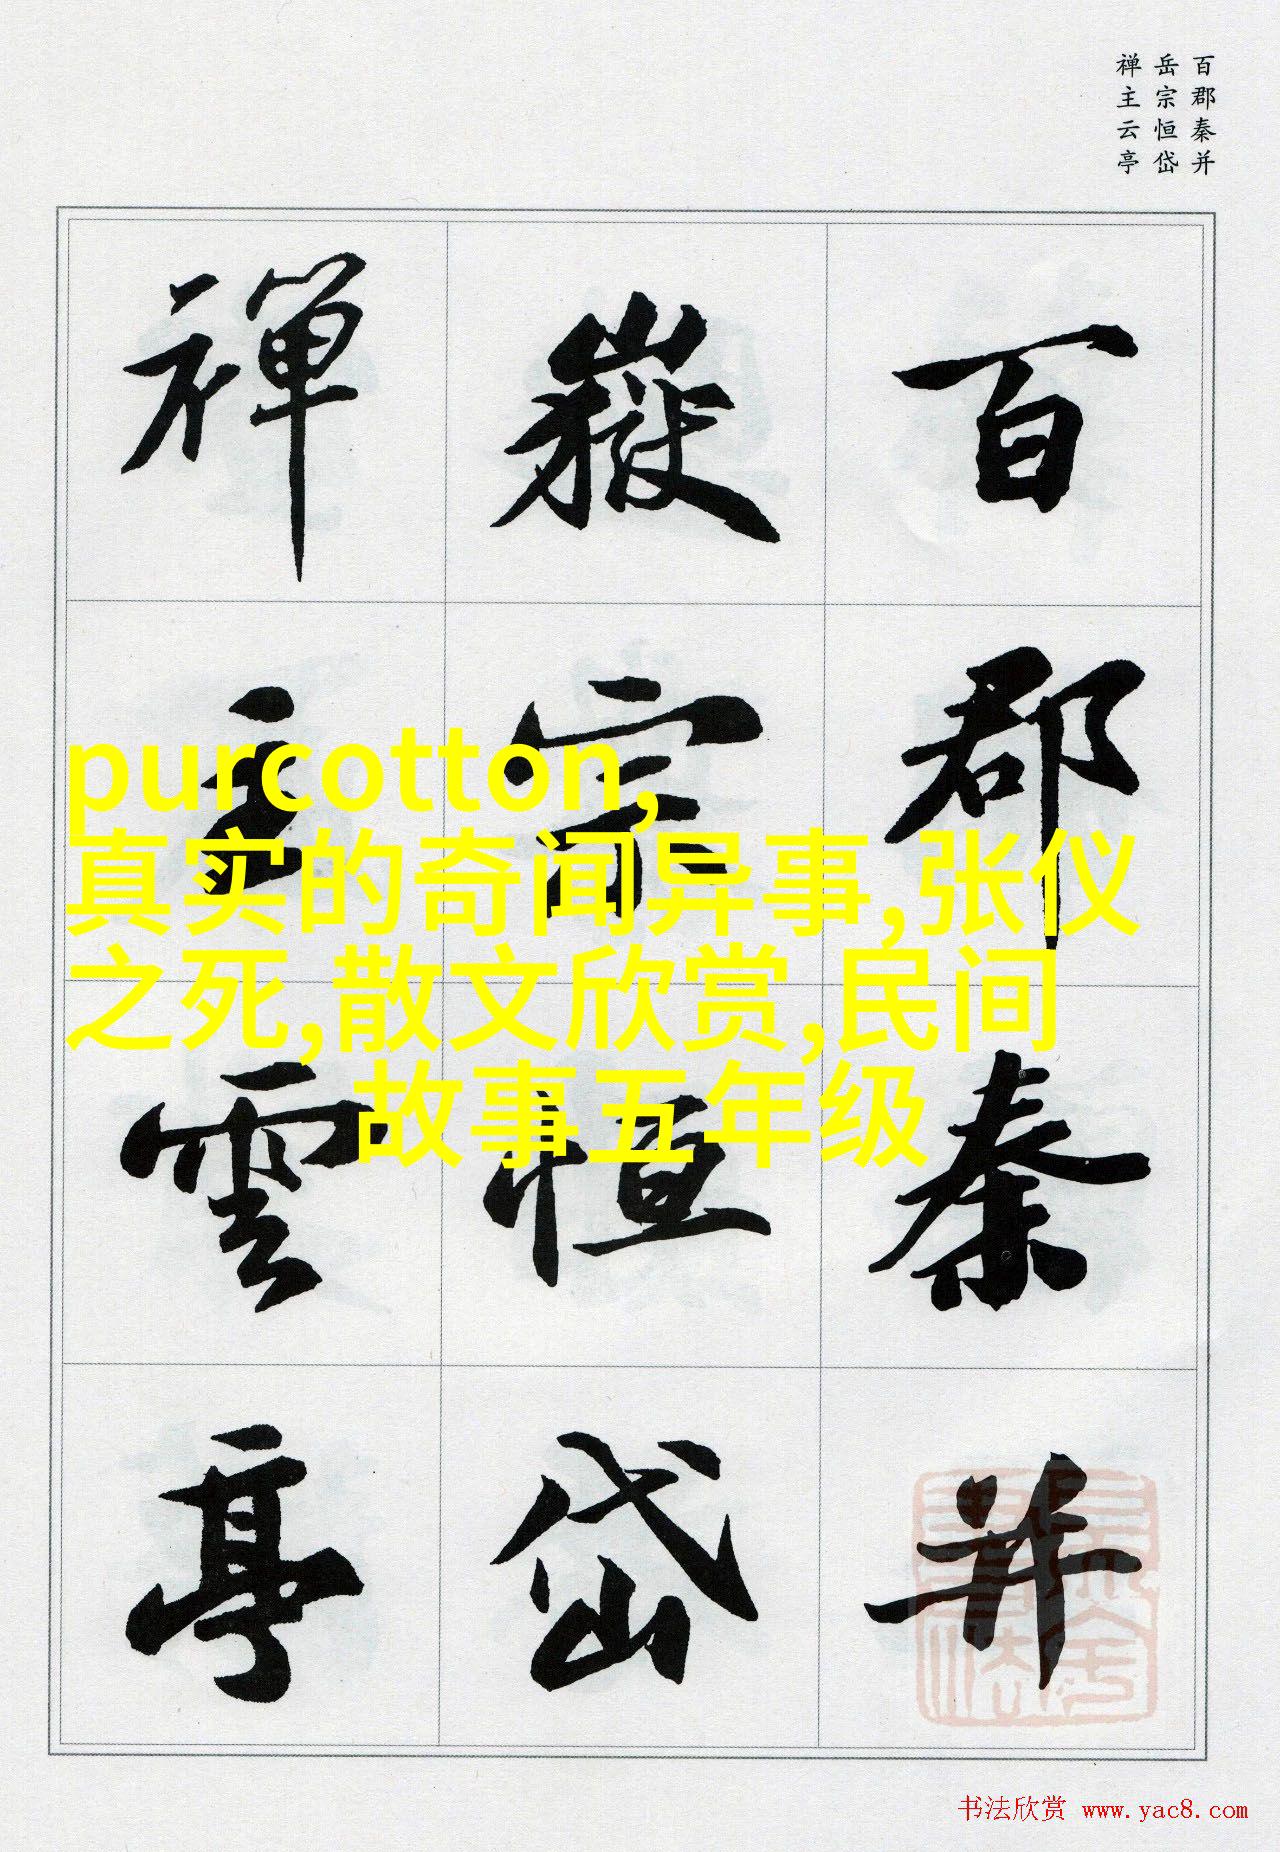 百郡秦并
岳宗恒岱
禅主云亭
百郡秦并
嶽宗恒岱
禅主雲亭
purcotton,
真实的奇闻异事,张仪
之死,散文欣赏,民间
故事五年级
书法欣赏 www.yac8.com